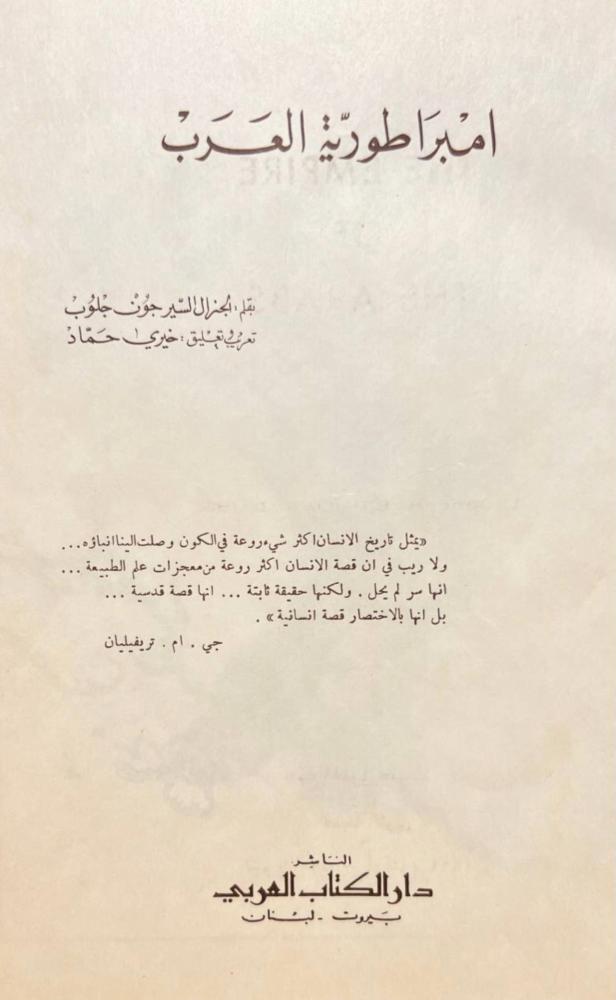 امْبرَاطوريّة العَرَبْ
بقلم: الجنرال السّير جُونْ جلُوبْ
تعريب وتعليق: خيري حمّاد
«يمثل تاريخ الانسان اكثر شيء روعة في الكون وصلت الينا انباؤه...
ولا ريب في ان قصة الانسان اكثر روعة من معجزات علم الطبيعة ...
انها سر لم يحل . ولكنها حقيقة ثابتة ... انها قصة قدسية ...
بل انها بالاختصار قصة انسانية » .
جي . ام . تريفيليان
الناشر
دار الكتاب العربي
بيروت - لبنان